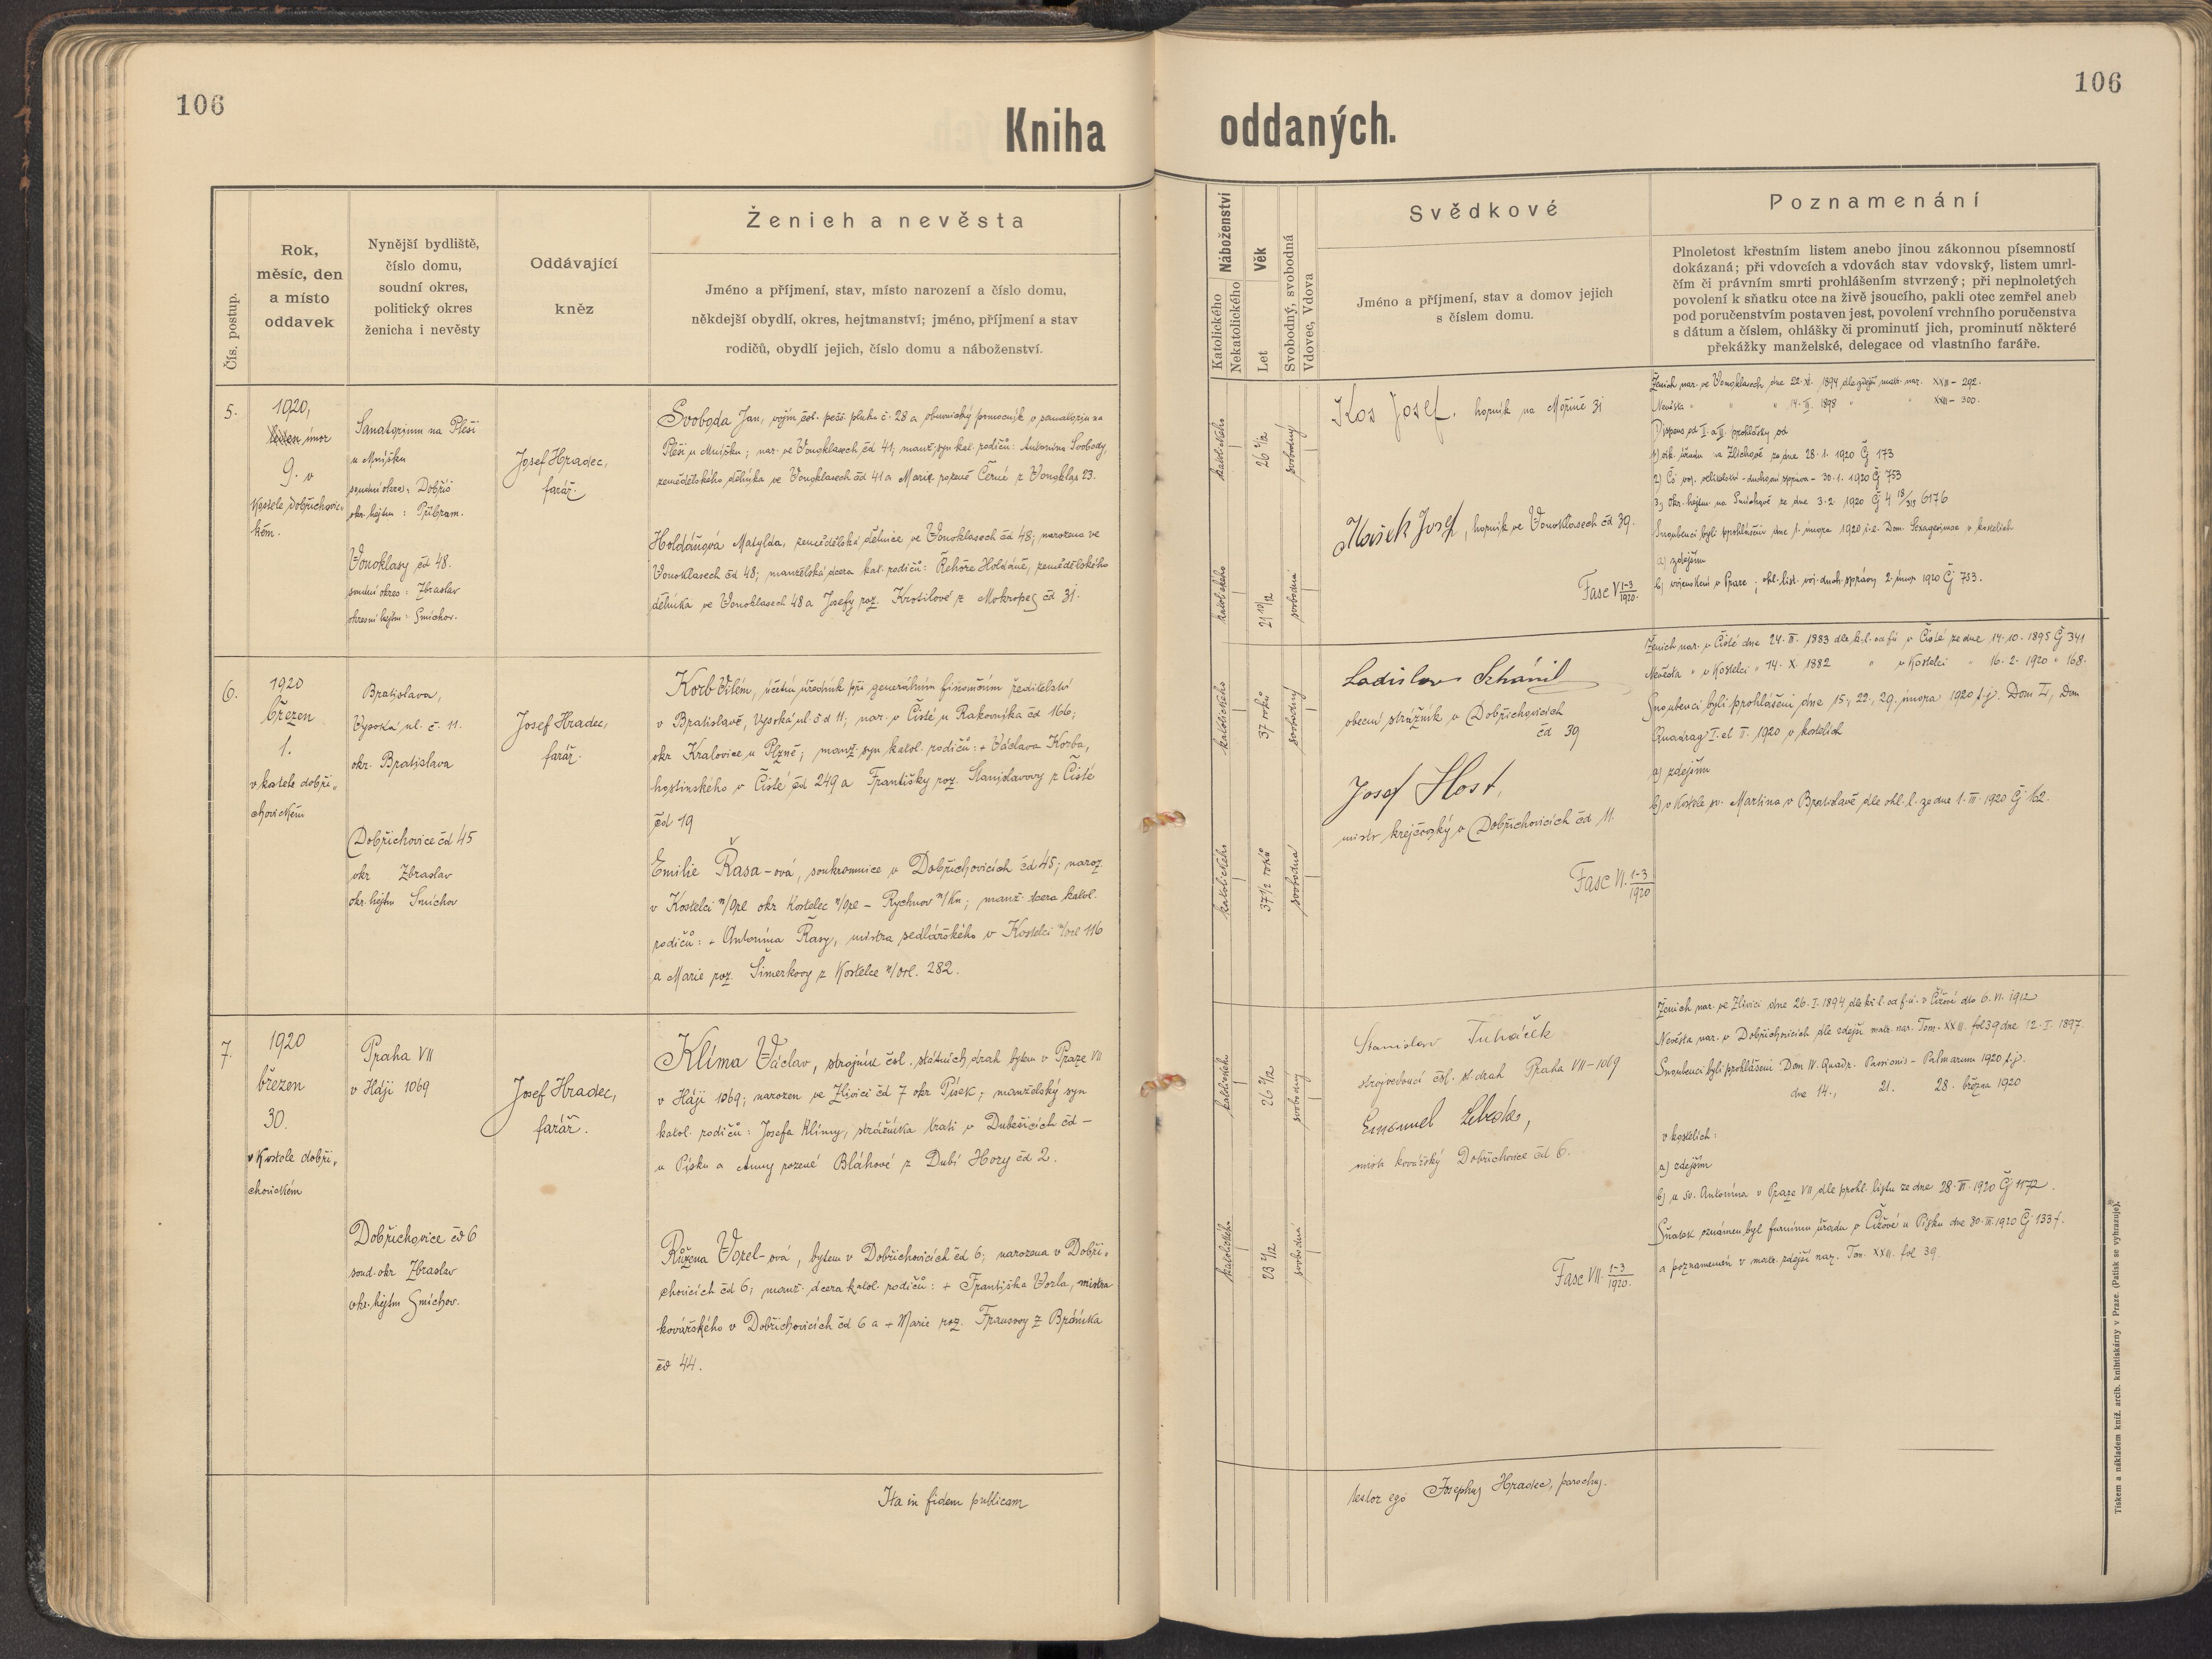 106
106
Kniha oddaných.
Čís. postup.
Rok,
měsíc, den
a místo
oddavek
Nynější bydliště,
číslo domu,
soudní okres,
politický okres
ženicha i nevěsty
Oddávající
kněz
Ženich a nevěsta
Jméno a příjmení, stav, místo narození a číslo domu,
někdejší obydlí, okres, hejtmanství; jméno, příjmení a stav
rodičů, obydlí jejich, číslo domu a náboženství.
Náboženství
Katolického
Nekatolického
Věk
Let
Svobodný, svobodná
Vdovec, Vdova
Svědkové
Jméno a příjmení, stav a domov jejich
s číslem domu.
Poznamenání
Plnoletost křestním listem anebo jinou zákonnou písemností
dokázaná; při vdovcích a vdovách stav vdovský, listem umrl-
čím či právním smrti prohlášením stvrzený; při neplnoletých
povolení k sňatku otce na živě jsoucího, pakli otec zemřel aneb
pod poručenstvím postaven jest, povolení vrchního poručenstva
s dátum a číslem, ohlášky či prominutí jich, prominutí některé
překážky manželské, delegace od vlastního faráře.
5.
1920,
únor
9. v
kostele dobřichovic-
kém.
Sanatorium na Pleši
u Mníšku
soudní okres: Dobříš
okr. hejtm: Příbram.
Vonoklasy čd 48.
soudní okres: Zbraslav
okresní hejtm: Smíchov.
Josef Hradec,
farář.
Svoboda Jan, vojín čsl. pěš. pluku č. 28 a pomocník v sanatoriu na
Pleši u Mníšku; nar. ve Vonoklasech čd 41; manž. syn kat. rodičů: Antonína Svobody,
zemědělského dělníka ve Vonoklasech čd 41 a Marie rozené Černé z Vonoklas 23.
Holdáňová Matylda, zemědělská dělnice ve Vonoklasech čd 48; narozena ve
Vonoklasech čd 48; manželská dcera kat. rodičů: Řehoře Holdáně, zemědělského
dělníka ve Vonoklasech 48 a Josefy roz. Krotilové z Mokropes čd 31.
katolického
26 2/12
svobodný
katolického
21 10/12
svobodná
Kos Josef, horník na Mořině 31
Mařek Josef, horník ve Vonoklasech čd 39.
Fasc V 1-3/1920.
Ženich nar. ve Vonoklasech dne 22. XI. 1894 dle zdejší matr. nar. XXII - 292.
Nevěsta " " " 14. II. 1898 " " XXII - 300.
Dispens od I. a II. prohlášky od
1) vik. úřadu na Zlíchově ze dne 28. 1. 1920 Čj 173
2) Čs voj. velitelství - duchovní správa - 30. 1. 1920 Čj 753
3) okr. hejtm. na Smíchově ze dne 3. 2. 1920 Čj 4 6176
Snoubenci byli prohlášeni dne 1. února 1920 Dom. Sexagesimae v kostelích
a) zdejším
b) vojenském v Praze; ohl. list. voj. duch. správy 2. únor 1920 Čj 753.
6.
1920
březen
1.
v kostele dobři-
chovickém
Bratislava,
Vysoká ul. č. 11.
okr. Bratislava
Dobřichovice čd 45
okr Zbraslav
okr. hejtm Smíchov
Josef Hradec,
farář.
Korb Vilém, účetní úředník při generálním finančním ředitelství
v Bratislavě, Vysoká ul. čd 11; nar. v Čisté u Rakovníka čd 166;
okr Kralovice u Plzně; manž. syn katol. rodičů: + Václava Korba,
hostinského v Čisté čd 249 a Františky roz. Stanislavovy z Čisté
čd 19
Emilie Řasa-ová, soukromnice v Dobřichovicích čd 45; naroz.
v Kostelci n/Orl okr Kostelec n/Orl - Rychnov n/Kn; manž. dcera katol.
rodičů: - Antonína Řasy, mistra sedlářského v Kostelci n/Orl 116
a Marie roz. Šimerkovy z Kostelce n/Orl. 282.
katolického
37 roků
svobodný
katolického
37 1/2 roků
svobodná
Ladislav Schánil
obecní strážník v Dobřichovicích
čd 39
Josef Host,
mistr krejčovský v Dobřichovicích čd 11.
Fasc VI. 1-3/1920
Ženich nar. v Čisté dne 24. II. 1883 dle k. l. od fú v Čisté ze dne 14. 10. 1895 Čj 341
Nevěsta " v Kostelci " 14. X. 1882 " v Kostelci " 16. 2. 1920 " 168.
Snoubenci byli prohlášeni dne 15., 22., 29. února 1920 t. j. Dom , Dom
Quadrag I. et II. 1920 v kostelích
a) zdejším
b) v kostele sv. Martina v Bratislavě dle ohl. l. ze dne 1. III. 1920 Čj 162.
7.
1920
březen
30.
v kostele dobři-
chovickém
Praha VII
v Háji 1069
Dobřichovice čd 6
soud. okr Zbraslav
okr. hejtm Smíchov.
Josef Hradec,
farář.
Klíma Václav, strojník čsl. státních drah bytem v Praze VII
v Háji 1069; narozen ve Zlivici čd 7 okr Písek; manželský syn
katol. rodičů: Josefa Klímy, strážníka trati v Duběšicích čd -
u Písku a Anny rozené Bláhové z Dubí Hory čd 2.
Růžena Vorel-ová, bytem v Dobřichovicích čd 6; narozena v Dobři-
chovicích čd 6; manž. dcera katol. rodičů: + Františka Vorla, mistra
kovářského v Dobřichovicích čd 6 a + Marie roz. Fraussovy z Bráníka
čd 44.
katolického
26 2/12
svobodný
katolického
23 2/12
svobodná
Stanislav Tuháček
strojvedoucí čsl. st. drah Praha VII - 1069
Emanuel Lebeda,
mistr kovářský Dobřichovice čd 6.
Fasc VII. 1-3/1920.
Ženich nar. ve Zlivici dne 26. I. 1894 dle kř. l. od f. ú. v Čížové dto 6. VI. 1912
Nevěsta nar. v Dobřichovicích dle zdejší matr. nar. Tom. XXIII. fol 39 dne 12. I. 1897.
Snoubenci byli prohlášeni Dom IV. Quadr. Passionis - Palmarum 1920 t. j.
dne 14., 21. 28. března 1920
v kostelích:
a) zdejším
b) u sv. Antonína v Praze VII dle prohl. listu ze dne 28. III. 1920 Čj 1172.
Sňatek oznámen byl farnímu úřadu v Čížové u Písku dne 30. III. 1920 Čj 133 f.
a poznamenán v matr. zdejší nar. Tom. XXIII. fol 39.
Ita in fidem publicam
testor ego Josephus Hradec, parochus.
Tiskem a nákladem kníž. arcib. knihtiskárny v Praze. (Patisk se vyhrazuje).